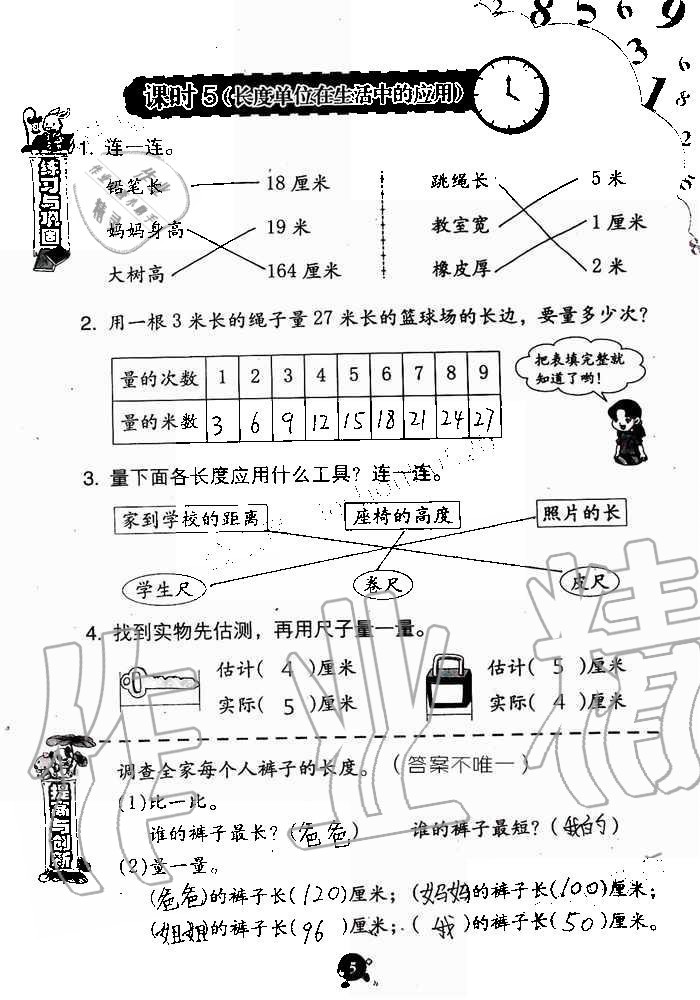 2 8 5 6 9
3 1
6 8 2 5
课时 5(长度单位在生活中的应用)
练习与巩固
1. 连一连。
铅笔长 18 厘米 跳绳长 5 米
妈妈身高 19 米 教室宽 1 厘米
大树高 164 厘米 橡皮厚 2 米
2. 用一根 3 米长的绳子量 27 米长的篮球场的长边，要量多少次？
量的次数 1 2 3 4 5 6 7 8 9
量的米数 3 6 9 12 15 18 21 24 27
把表填完整就
知道了哟!
3. 量下面各长度应用什么工具？连一连。
家到学校的距离 座椅的高度 照片的长
学生尺 卷尺 皮尺
4. 找到实物先估测，再用尺子量一量。
估计( 4 )厘米 估计( 5 )厘米
实际( 5 )厘米 实际( 4 )厘米
提高与创新
调查全家每个人裤子的长度。(答案不唯一)
(1)比一比。
谁的裤子最长？(爸爸) 谁的裤子最短？(我的)
(2)量一量。
(爸爸)的裤子长(120)厘米；(妈妈)的裤子长(100)厘米；
(姐姐)的裤子长(96)厘米；(我)的裤子长(50)厘米。
5
作业精